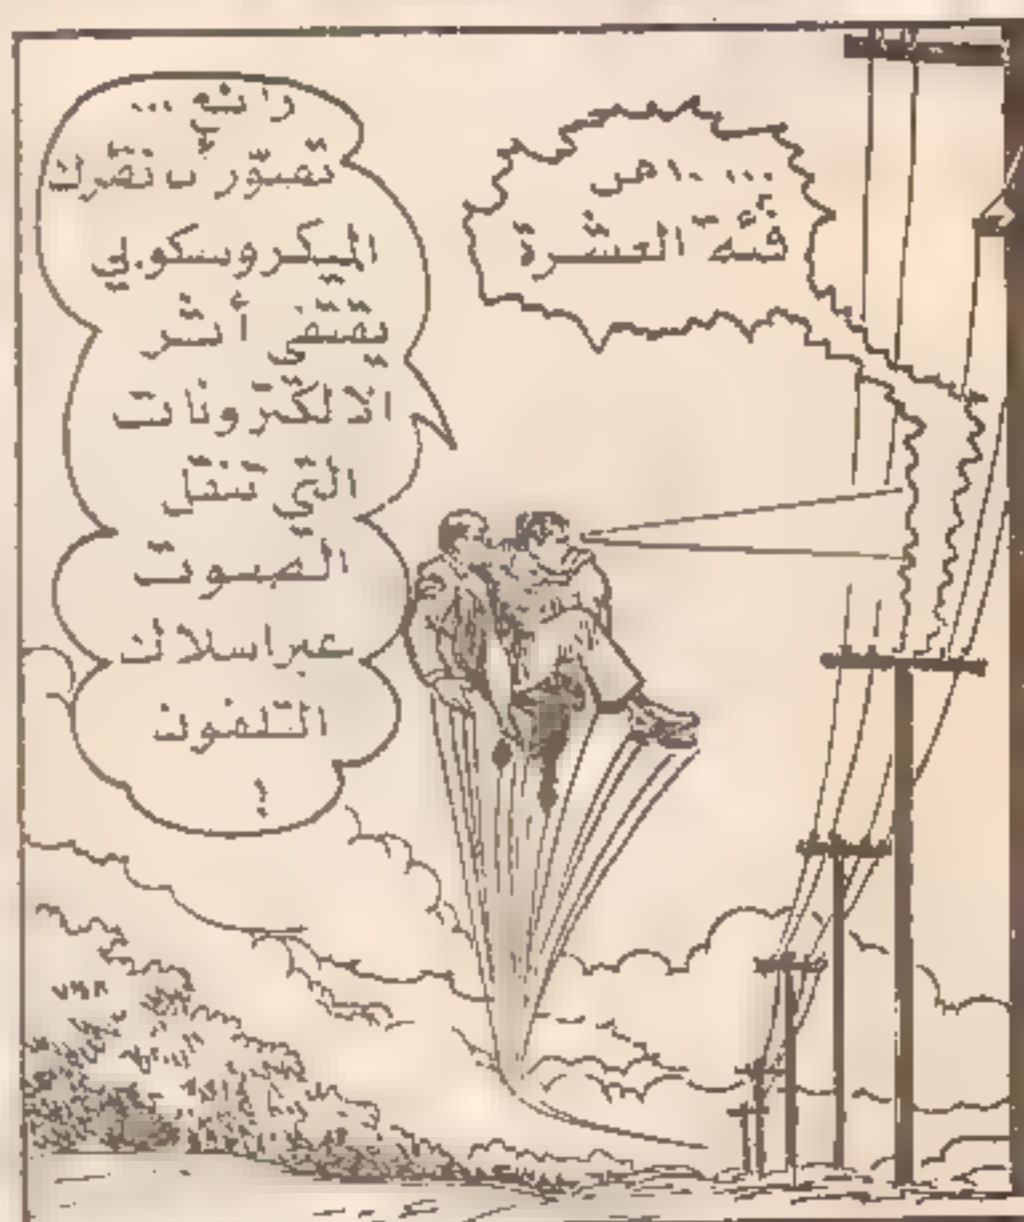 ... من
فئة العشرة
رائع ...
تصوّر أن
الميكروسكوبي
يقتفي أثر
الالكترونات
التي تنقل
الصوت
عبر اسلاك
التلفون
؟